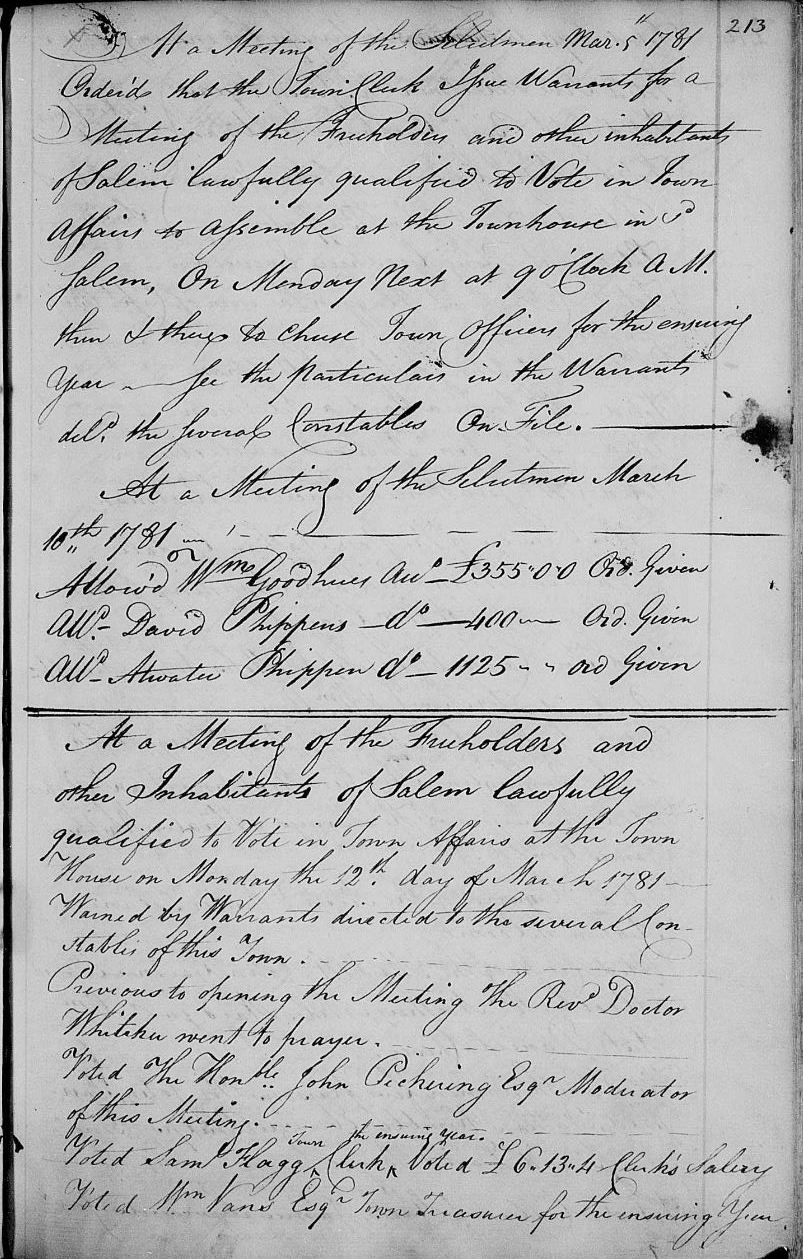 213
At a Meeting of the Selectmen Mar. 5th 1781
Order'd that the Town Clerk Issue Warrants for a
Meeting of the Freeholders and other inhabitants
of Salem lawfully qualified to Vote in Town
Affairs to Assemble at the Townhouse in sd
Salem, On Monday Next at 9 o'Clock A M.
then & there to Chuse Town Officers for the ensuing
Year — See the particulars in the Warrants
deld. the several Constables On File. —
At a Meeting of the Selectmen March
10th 1781 —
Allow'd Wm Goodhues Acco — £355"0"0 Ord. Given
Alld — David Phippens — do — 400 — Ord. Given
Alld — Atwater Phippen do — 1125 " " ord Given
At a Meeting of the Freeholders and
other Inhabitants of Salem lawfully
qualified to Vote in Town Affairs at the Town
House on Monday the 12th. day of March 1781 —
Warned by Warrants directed to the several Con-
stables of this Town.
Previous to opening the Meeting The Revd Doctor
Whitaker went to prayer.
Voted The Honble. John Pickering Esqr Moderator
of this Meeting.
Town the ensuing Year.
Voted Saml Flagg ^ Clerk ^ Voted £6"13"4 Clerk's Salery
Voted Wm Vans Esqr Town Treasurer for the ensuing Year